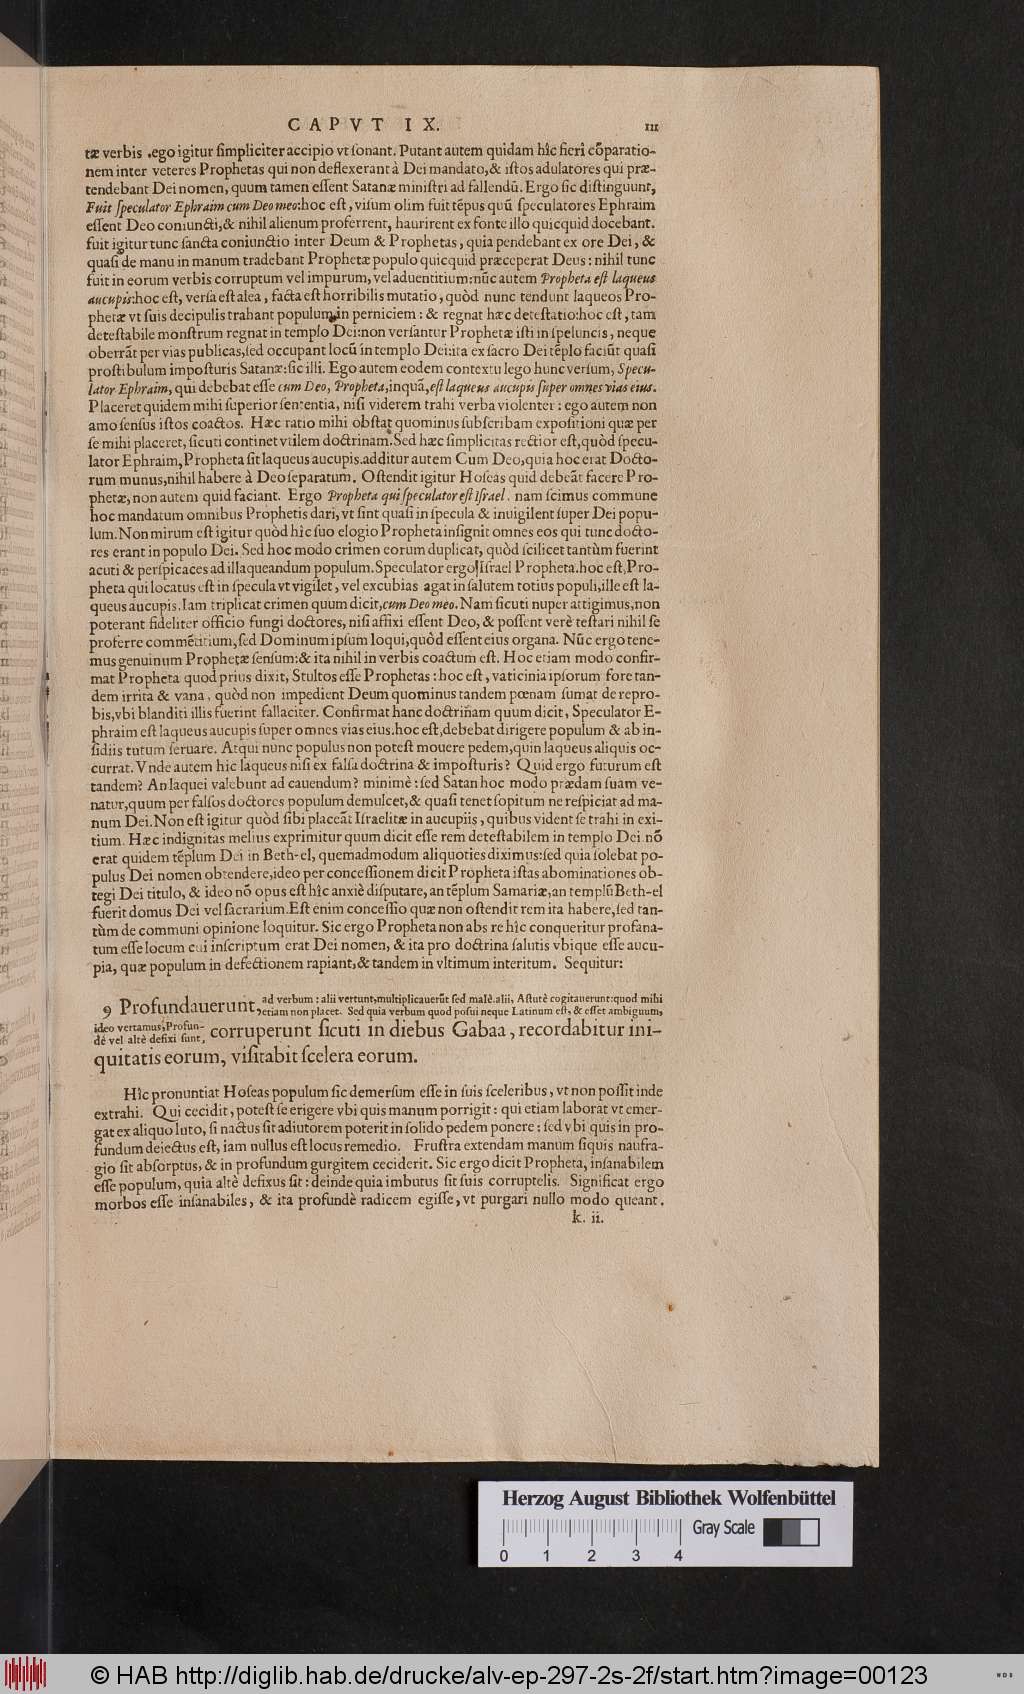 CAPVT IX. 111
tæ verbis .ego igitur ſimpliciter accipio vt ſonant. Putant autem quidam hîc fieri cõparatio-
nem inter veteres Prophetas qui non deflexerant à Dei mandato,& iſtos adulatores qui præ-
tendebant Dei nomen, quum tamen eſſent Satanæ miniſtri ad fallendũ. Ergo ſic diſtinguunt,
Fuit ſpeculator Ephraim cum Deo meo:hoc eſt, viſum olim fuit tẽpus quũ ſpeculatores Ephraim
eſſent Deo coniuncti,& nihil alienum proferrent, haurirent ex fonte illo quicquid docebant.
fuit igitur tunc ſancta coniunctio inter Deum & Prophetas, quia pendebant ex ore Dei, &
quaſi de manu in manum tradebant Prophetæ populo quicquid præceperat Deus: nihil tunc
fuit in eorum verbis corruptum vel impurum, vel aduentitium:nũc autem Propheta eſt laqueus
aucupis:hoc eſt, verſa eſt alea, facta eſt horribilis mutatio, quòd nunc tendunt laqueos Pro-
phetæ vt ſuis decipulis trahant populum in perniciem: & regnat hæc deteſtatio:hoc eſt, tam
deteſtabile monſtrum regnat in templo Dei:non verſantur Prophetæ iſti in ſpeluncis, neque
oberrãt per vias publicas,ſed occupant locũ in templo Dei:ita ex ſacro Dei tẽplo faciũt quaſi
proſtibulum impoſturis Satanæ:ſic illi. Ego autem eodem contextu lego hunc verſum, Specu-
lator Ephraim, qui debebat eſſe cum Deo, Propheta,inquã,eſt laqueus aucupis ſuper omnes vias eius.
Placeret quidem mihi ſuperior ſententia, niſi viderem trahi verba violenter: ego autem non
amo ſenſus iſtos coactos. Hæc ratio mihi obſtat quominus ſubſcribam expoſitioni quæ per
ſe mihi placeret, ſicuti continet vtilem doctrinam.Sed hæc ſimplicitas rectior eſt,quòd ſpecu-
lator Ephraim, Propheta ſit laqueus aucupis.additur autem Cum Deo,quia hoc erat Docto-
rum munus,nihil habere à Deo ſeparatum. Oſtendit igitur Hoſeas quid debeãt facere Pro-
phetæ, non autem quid faciant. Ergo Propheta qui ſpeculator eſt Iſrael. nam ſcimus commune
hoc mandatum omnibus Prophetis dari, vt ſint quaſi in ſpecula & inuigilent ſuper Dei popu-
lum.Non mirum eſt igitur quòd hîc ſuo elogio Propheta inſignit omnes eos qui tunc docto-
res erant in populo Dei. Sed hoc modo crimen eorum duplicat, quòd ſcilicet tantùm fuerint
acuti & perſpicaces ad illaqueandum populum.Speculator ergo Iſrael Propheta.hoc eſt,Pro-
pheta qui locatus eſt in ſpecula vt vigilet, vel excubias agat in ſalutem totius populi,ille eſt la-
queus aucupis.Iam triplicat crimen quum dicit,cum Deo meo. Nam ſicuti nuper attigimus,non
poterant fideliter officio fungi doctores, niſi affixi eſſent Deo, & poſſent verè teſtari nihil ſe
proferre commẽtitium,ſed Dominum ipſum loqui,quòd eſſent eius organa. Nũc ergo tene-
mus genuinum Prophetæ ſenſum:& ita nihil in verbis coactum eſt. Hoc etiam modo confir-
mat Propheta quod prius dixit, Stultos eſſe Prophetas: hoc eſt, vaticinia ipſorum fore tan-
dem irrita & vana, quòd non impedient Deum quominus tandem pœnam ſumat de repro-
bis,vbi blanditi illis fuerint fallaciter. Confirmat hanc doctrinam quum dicit, Speculator E-
phraim eſt laqueus aucupis ſuper omnes vias eius.hoc eſt,debebat dirigere populum & ab in-
ſidiis tutum ſeruare. Atqui nunc populus non poteſt mouere pedem,quin laqueus aliquis oc-
currat. Vnde autem hic laqueus niſi ex falſa doctrina & impoſturis? Quid ergo futurum eſt
tandem? An laquei valebunt ad cauendum? minimè: ſed Satan hoc modo prædam ſuam ve-
natur,quum per falſos doctores populum demulcet,& quaſi tenet ſopitum ne reſpiciat ad ma-
num Dei.Non eſt igitur quòd ſibi placeãt Iſraelitæ in aucupiis, quibus vident ſe trahi in exi-
tium. Hæc indignitas melius exprimitur quum dicit eſſe rem deteſtabilem in templo Dei.nõ
erat quidem tẽplum Dei in Beth-el, quemadmodum aliquoties diximus:ſed quia ſolebat po-
pulus Dei nomen obtendere,ideo per conceſſionem dicit Propheta iſtas abominationes ob-
tegi Dei titulo, & ideo nõ opus eſt hîc anxiè diſputare, an tẽplum Samariæ,an templũ Beth-el
fuerit domus Dei vel ſacrarium.Eſt enim conceſſio quæ non oſtendit rem ita habere,ſed tan-
tùm de communi opinione loquitur. Sic ergo Propheta non abs re hîc conqueritur profana-
tum eſſe locum cui inſcriptum erat Dei nomen, & ita pro doctrina ſalutis vbique eſſe aucu-
pia, quæ populum in defectionem rapiant,& tandem in vltimum interitum. Sequitur:
9 Profundauerunt, ad verbum: alii vertunt,multiplicauerũt ſed malè.alii, Aſtutè cogitauerunt:quod mihi
etiam non placet. Sed quia verbum quod poſui neque Latinum eſt, & eſſet ambiguum,
ideo vertamus,Profun-
dè vel altè defixi ſunt, corruperunt ſicuti in diebus Gabaa, recordabitur ini-
quitatis eorum, viſitabit ſcelera eorum.
Hîc pronuntiat Hoſeas populum ſic demerſum eſſe in ſuis ſceleribus, vt non poſſit inde
extrahi. Qui cecidit, poteſt ſe erigere vbi quis manum porrigit: qui etiam laborat vt emer-
gat ex aliquo luto, ſi nactus ſit adiutorem poterit in ſolido pedem ponere: ſed vbi quis in pro-
fundum deiectus eſt, iam nullus eſt locus remedio. Fruſtra extendam manum ſiquis naufra-
gio ſit abſorptus, & in profundum gurgitem ceciderit. Sic ergo dicit Propheta, inſanabilem
eſſe populum, quia altè defixus ſit: deinde quia imbutus ſit ſuis corruptelis. Significat ergo
morbos eſſe inſanabiles, & ita profundè radicem egiſſe, vt purgari nullo modo queant.
k. ii.
Herzog August Bibliothek Wolfenbüttel
Gray Scale
0 1 2 3 4
© HAB http://diglib.hab.de/drucke/alv-ep-297-2s-2f/start.htm?image=00123